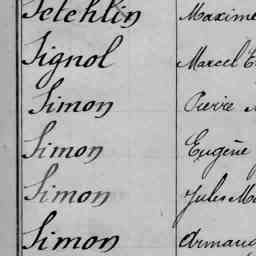 Petchlin Maxime
Signol Marcel
Simon Pierre
Simon Eugène
Simon Jules
Simon Armand